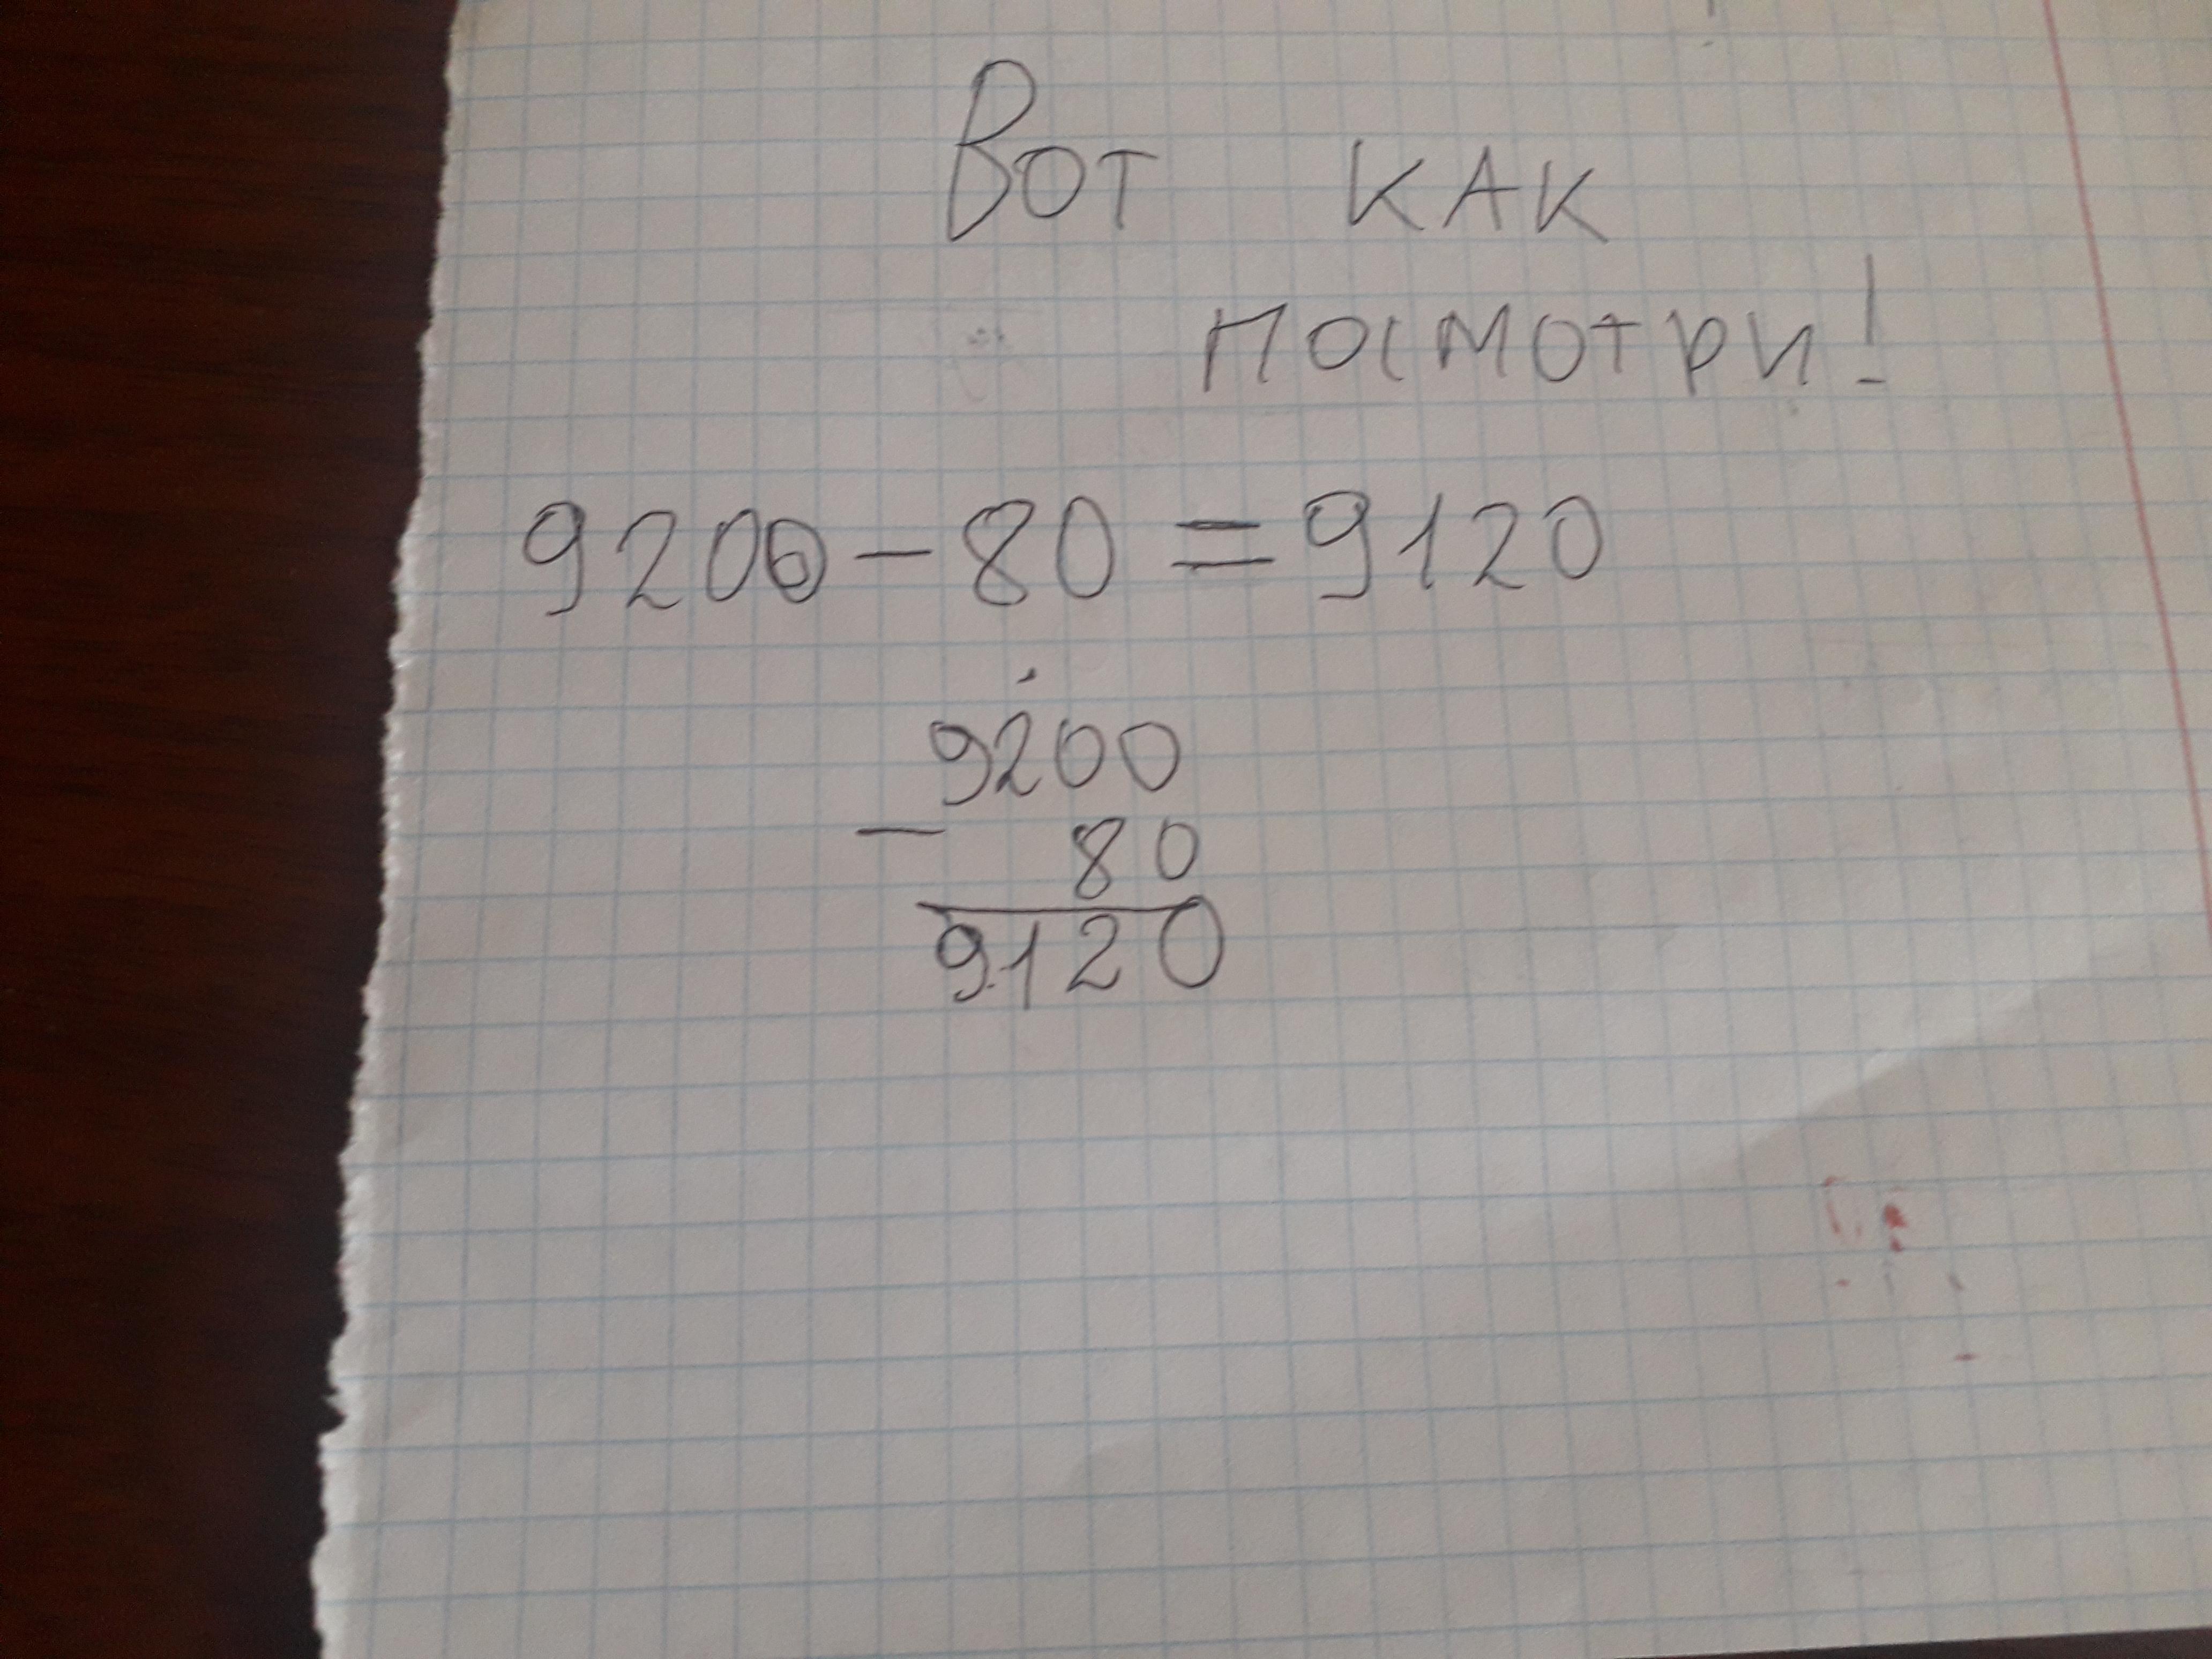 Вот как
посмотри!
9200-80=9120
9200
- 80
9120